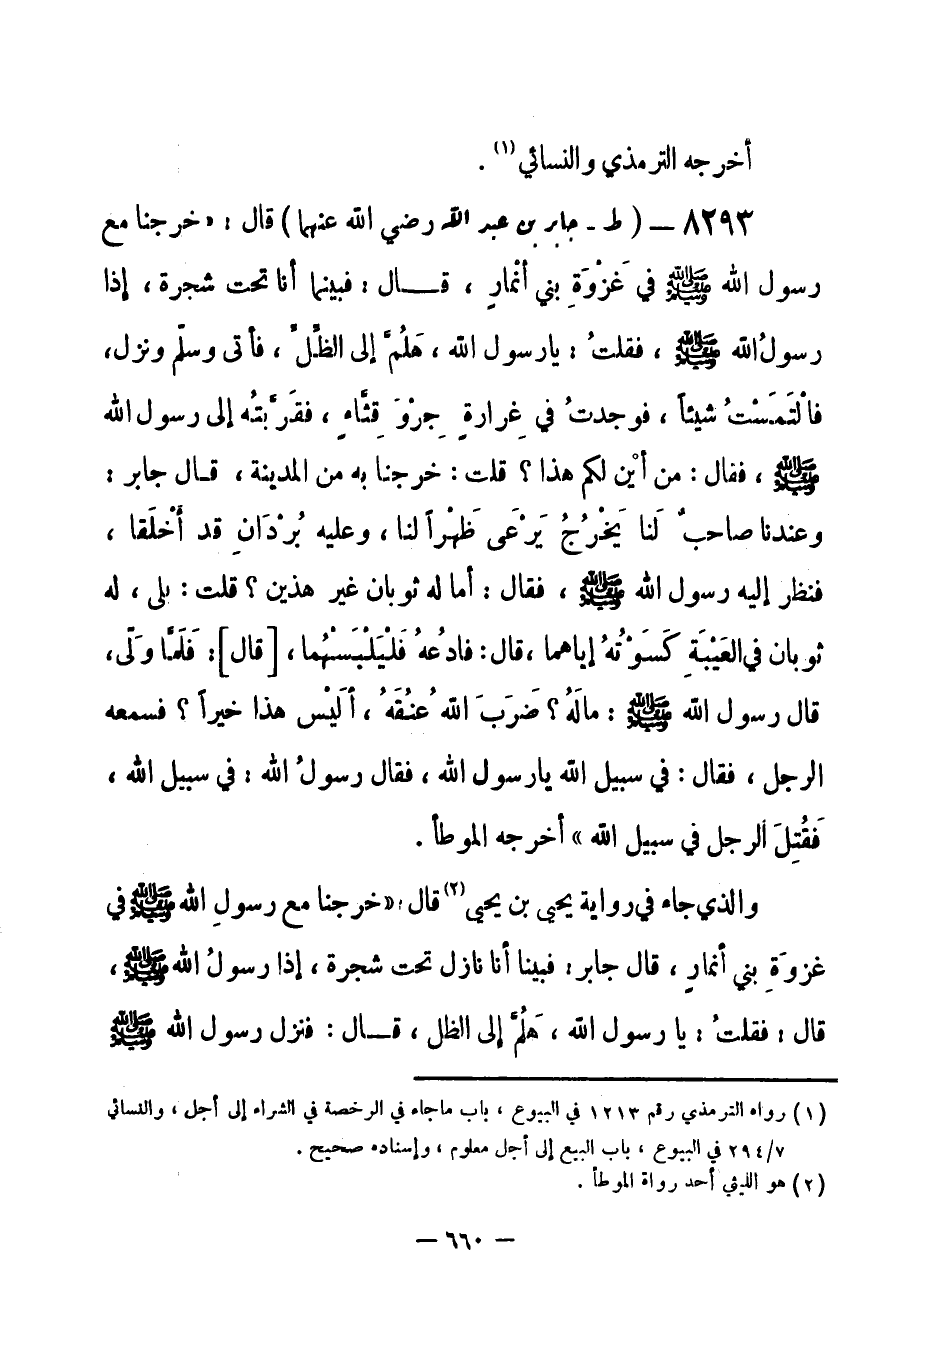 أخرجه الترمذي والنسائي (١) .
٨٢٩٣ — ( ط ـ جابر بن عبد الله رضي الله عنهما ) قال : « خرجنا مع
رسول الله ﷺ في غَزْوَةِ بني أنْمارٍ ، قـــال : فبينما أنا تحت شجرة ، إذا
رسولُ الله ﷺ ، فقلتُ : يارسول الله ، هَلُمَّ إلى الظِّلِّ ، فأتى وسلّم ونزل،
فالْتَمَسْتُ شيئاً ، فوجدتُ في غِرارةٍ جِرْوَ قِثَّاءٍ ، فقَرَّبتُه إلى رسول الله
ﷺ ، فقال : من أيْن لكم هذا ؟ قلت : خرجنا به من المدينة ، قـال جابر :
وعندنا صاحبٌ لَنا يَخْرُجُ يَرْعَى ظَهْراً لنا ، وعليه بُرْدَانِ قد أَخْلَقا ،
فنظر إليه رسول الله ﷺ ، فقال : أما له ثوبان غير هذين ؟ قلت : بلى ، له
ثوبان في العَيْبَةِ كَسَوْتُهُ إياهما ، قال : فادعُهُ فَلْيَلْبَسْهُما ، [قال] : فَلَمَّا ولَّى،
قال رسول الله ﷺ : مالَهُ ؟ ضَرَبَ اللهُ عُنُقَهُ ، أَلَيْس هذا خيراً ؟ فسمعه
الرجل ، فقال : في سبيل الله يارسول الله ، فقال رسولُ الله : في سبيل الله ،
فَقُتِلَ الرجل في سبيل الله » أخرجه الموطأ .
والذي جاء في رواية يحيى بن يحيى (٢) قال : « خرجنا مع رسولِ الله ﷺ في
غزوَةِ بني أنمارٍ ، قال جابر : فبينا أنا نازل تحت شجرة ، إذا رسولُ الله ﷺ ،
قال : فقلتُ : يا رسول الله ، هَلُمَّ إلى الظل ، قـــال : فنزل رسول الله ﷺ
(١) رواه الترمذي رقم ١٢١٣ في البيوع ، باب ماجاء في الرخصة في الشراء إلى أجل ، والنسائي
٢٩٤/٧ في البيوع ، باب البيع إلى أجل معلوم ، وإسناده صحيح .
(٢) هو الليثي أحد رواة الموطأ .
— ٦٦٠ —